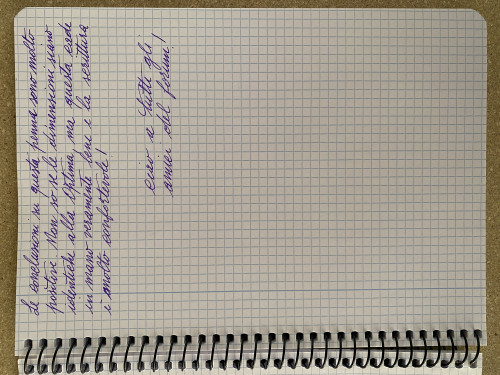 Le conclusioni su questa penna sono molto
positive. Non so se le dimensioni siano
identiche alla Optima, ma questa cade
in mano veramente bene e la scrittura
è molto confortevole!
ciao a tutti gli
amici del forum!